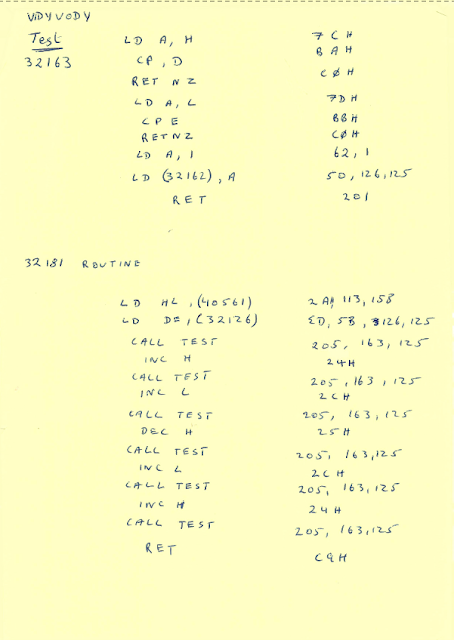 VIDYVODY
Test
32163
LD A, H 7CH
CP, D BAH
RET NZ CØH
LD A, L 7DH
CP E BBH
RET NZ CØH
LD A, 1 62, 1
LD (32162), A 50, 126, 125
RET 201
32181 ROUTINE
LD HL, (40561) 2AH, 113, 158
LD DE, (32126) ED, 5B, 126, 125
CALL TEST 205, 163, 125
INC H 24H
CALL TEST 205, 163, 125
INC L 2CH
CALL TEST 205, 163, 125
DEC H 25H
CALL TEST 205, 163, 125
INC L 2CH
CALL TEST 205, 163, 125
INC H 24H
CALL TEST 205, 163, 125
RET C9H